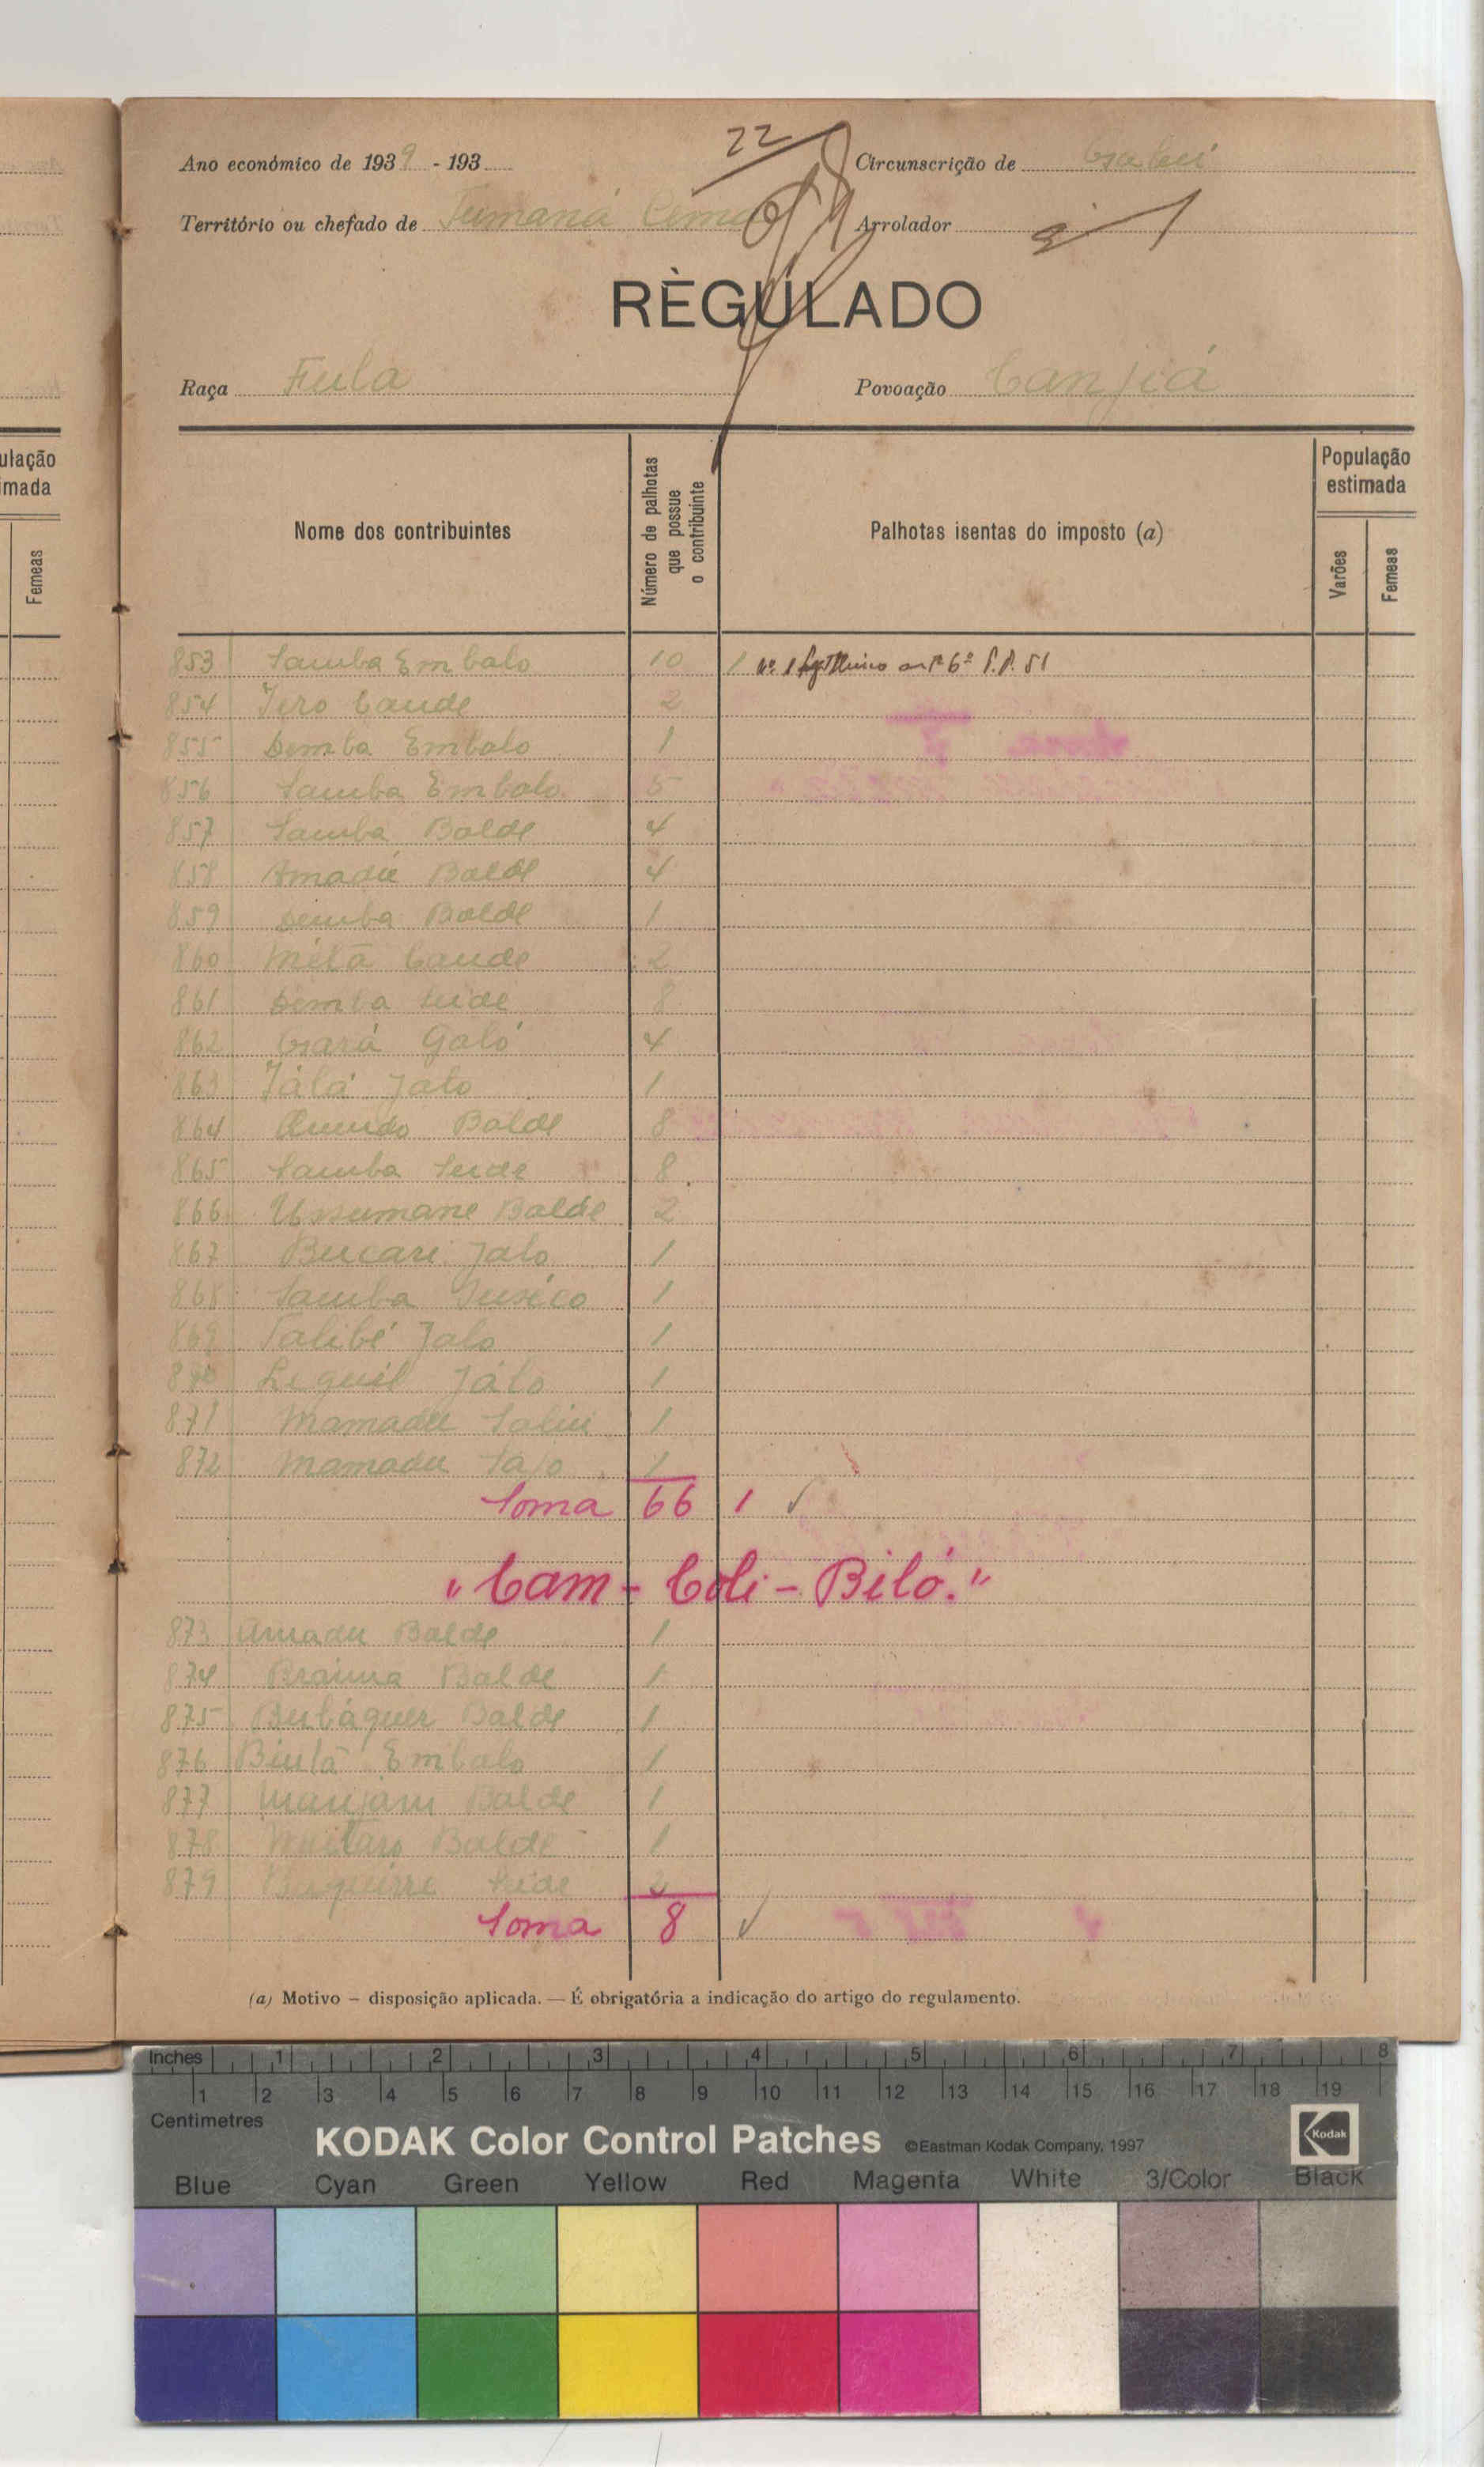 22
Ano económico de 1939 - 193
Circunscrição de Gabú
Território ou chefado de Tumaná Cima
Arrolador
RÈGULADO
Raça Fula
Povoação Canjiá
ulação
imada
Femeas
Nome dos contribuintes
Número de palhotas que possue o contribuinte
Palhotas isentas do imposto (a)
População estimada
Varões
Femeas
853 Samba Embalo 10 1
854 Iero Cande 2
855 Demba Embalo 1
856 Samba Embalo 5
857 Samba Balde 4
858 Amadú Balde 4
859 Demba Balde 1
860 Mitã Cande 2
861 Demba Seide 8
862 Gará Galó 4
863 Jálá Jalo 1
864 Balde 8
865 Samba Seide 8
866 Ussumane Balde 2
867 Bucari Jalo 1
868 Samba 1
869 Talibé Jalo 1
870 Jálo 1
871 Mamadu Saliu 1
872 Mamadu 1
Soma 66 1 ✓
"Cam - Coli - Biló."
873 Amadu Balde 1
874 Braima Balde 1
875 Bubáquer Balde 1
876 Embalo 1
877 Balde 1
878 Balde 1
879 Seide 2
Soma 8 ✓
(a) Motivo — disposição aplicada. — É obrigatória a indicação do artigo do regulamento.
Inches 1 2 3 4 5 6 7 8
1 2 3 4 5 6 7 8 9 10 11 12 13 14 15 16 17 18 19
Centimetres
KODAK Color Control Patches ©Eastman Kodak Company, 1997 Kodak
Blue Cyan Green Yellow Red Magenta White 3/Color Black